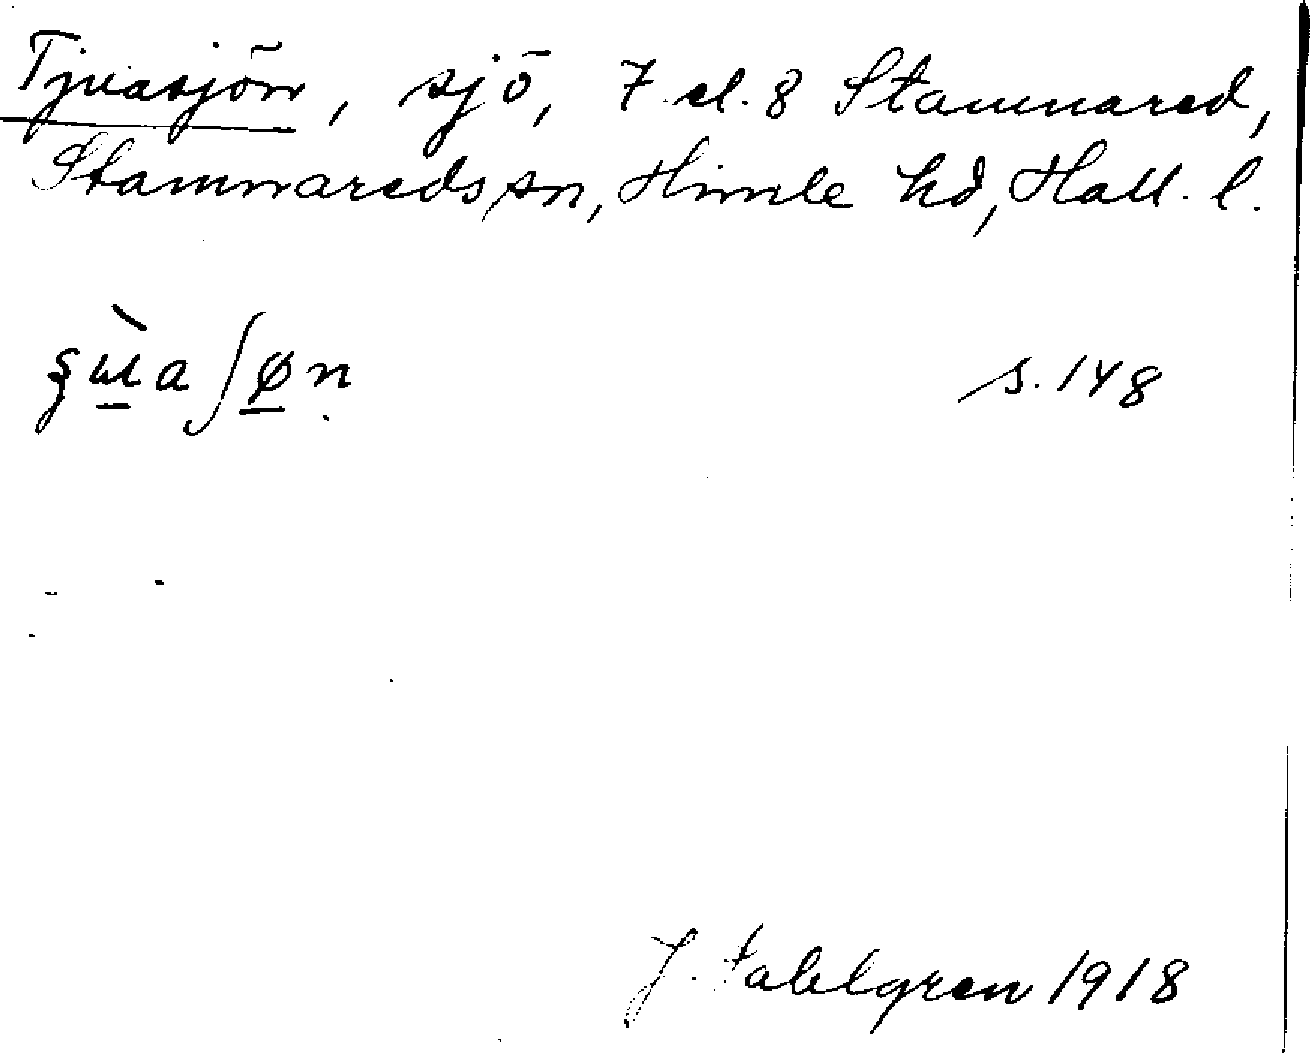 Tjuasjön, sjö, 7 el. 8 Stamnared,
Stamnareds sn, Himle hd, Hall. l.
s. 148
J. Sahlgren 1918